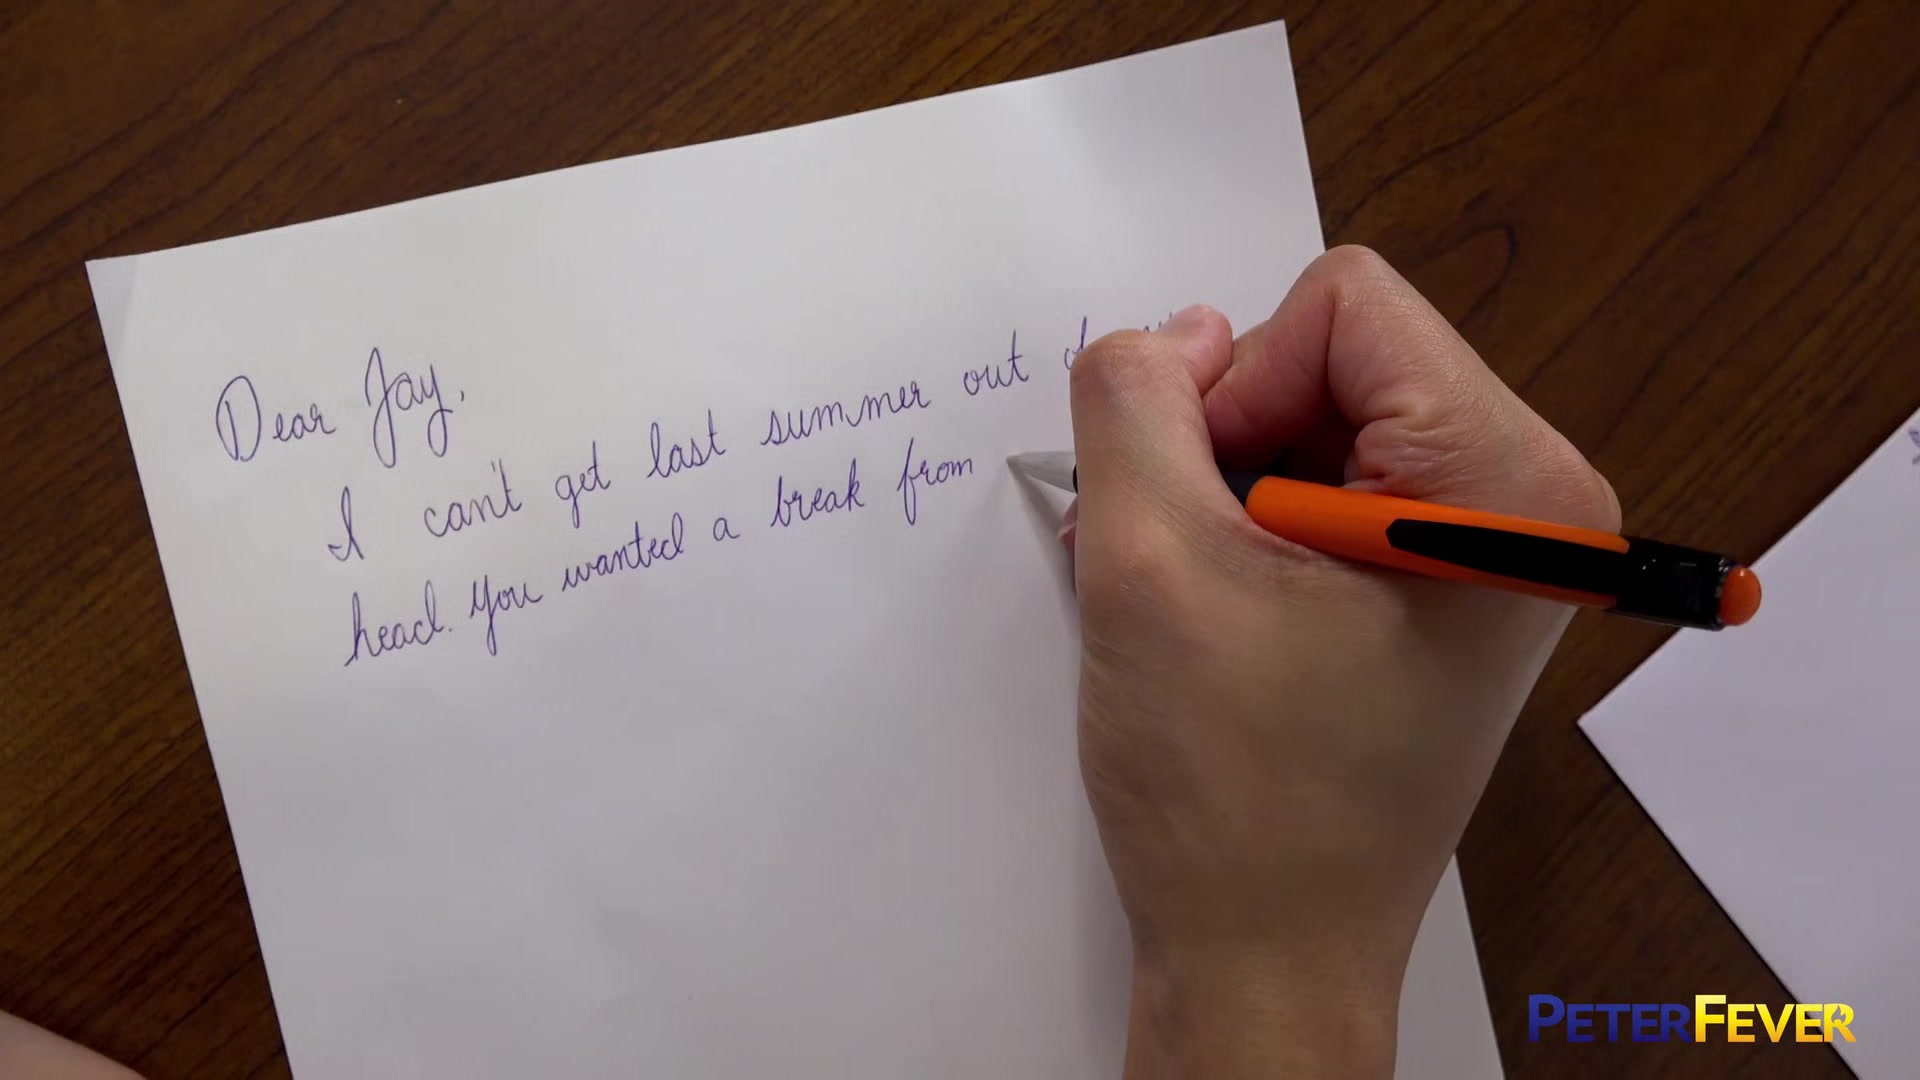 Dear Jay,
I can't get last summer out of
head. You wanted a break from
PETERFEVER